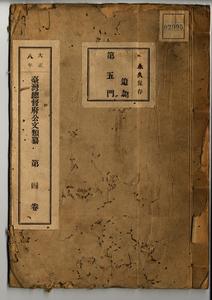 02995
永久保存
追加
第五門
大正八年
臺灣總督府公文類纂
第四卷